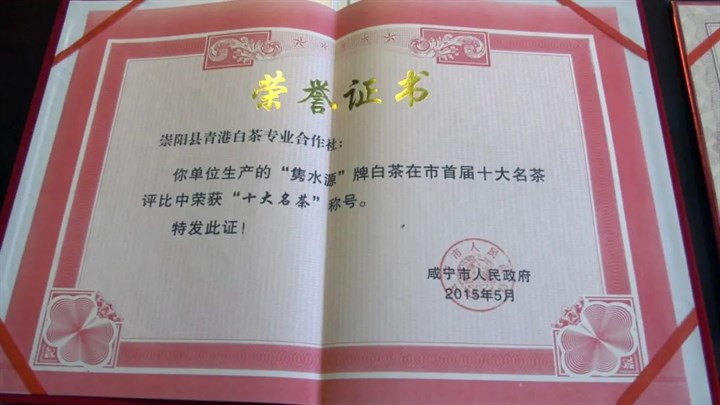 荣誉证书
崇阳县青港白茶专业合作社：
你单位生产的“隽水源”牌白茶在市首届十大名茶
评比中荣获“十大名茶”称号。
特发此证！
咸宁市人民政府
2015年5月